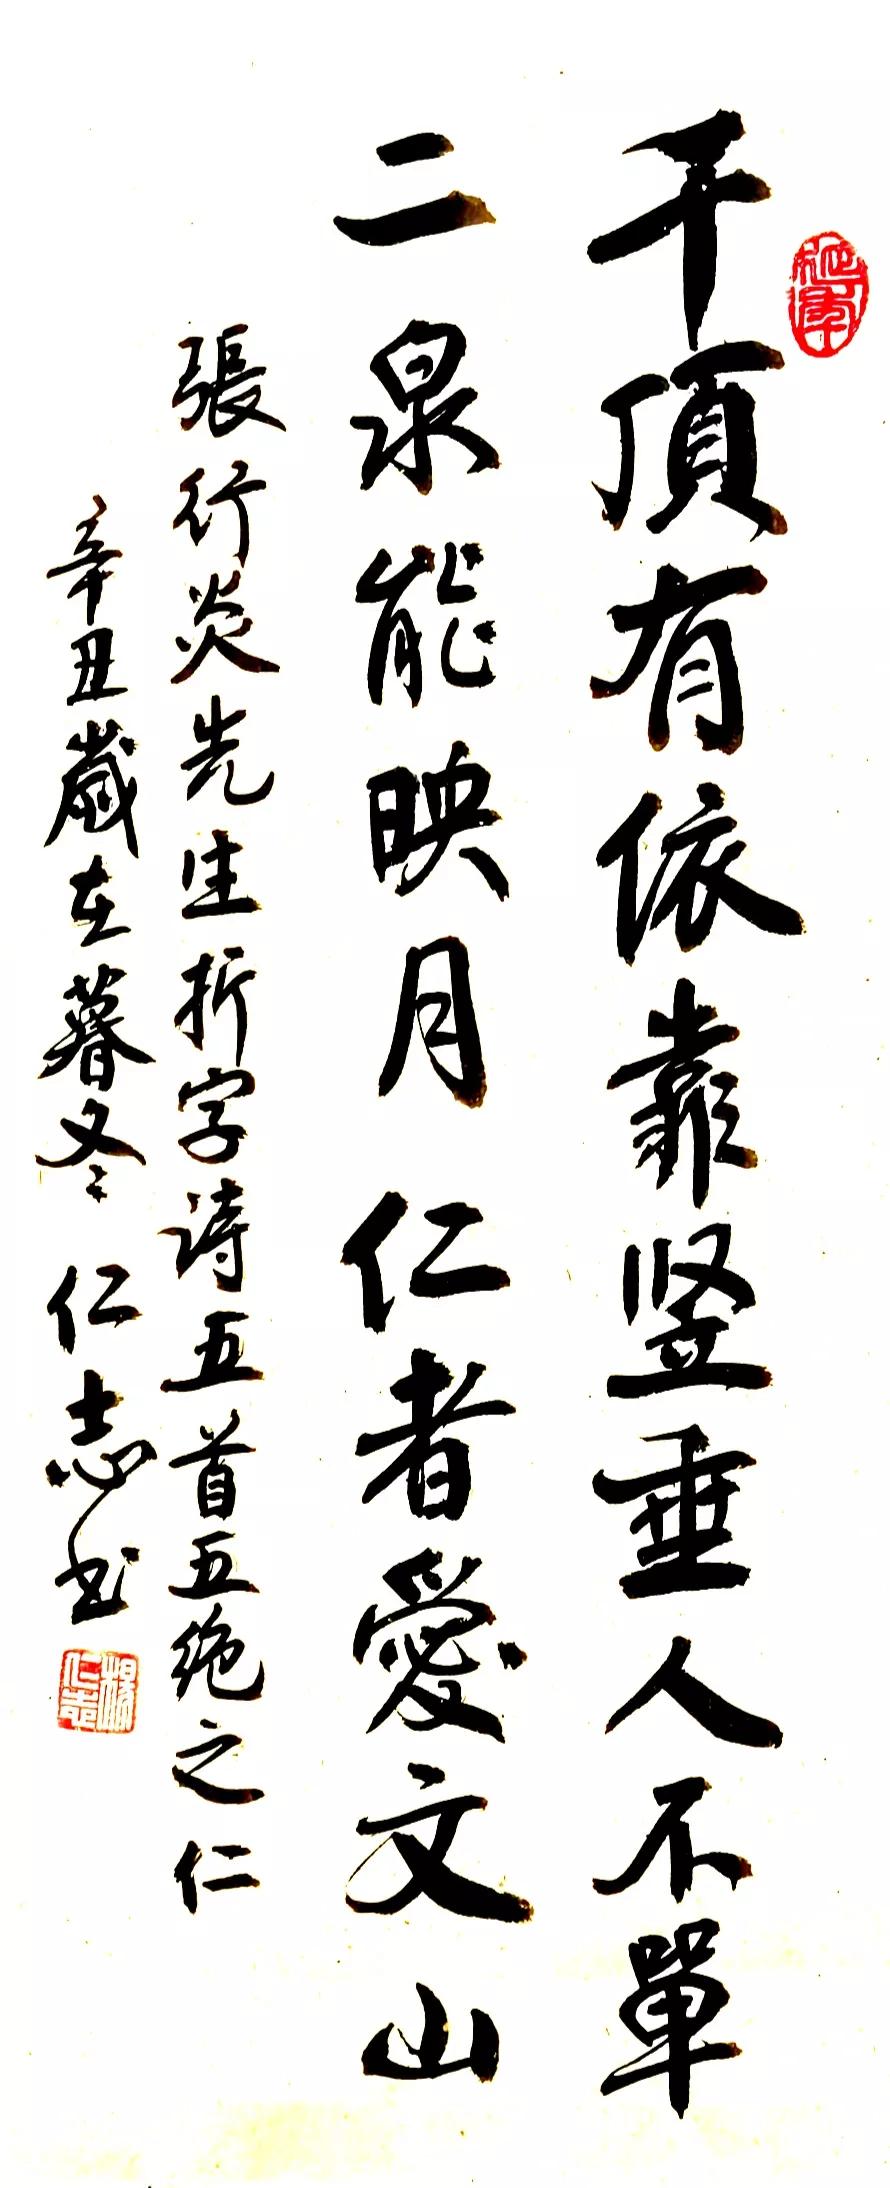 千頂有依靠竖垂人不單
二泉能映月仁者愛文山
張行炎先生折字诗五首五绝之仁
辛丑歲在暮冬仁志书
楊仁志